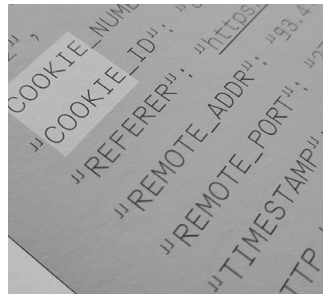 COOKIE_NUM
"COOKIE_ID": "
"REFERER": "https:
"REMOTE_ADDR": "93.4
"REMOTE_PORT": "
"TIMESTAMP"
TTP